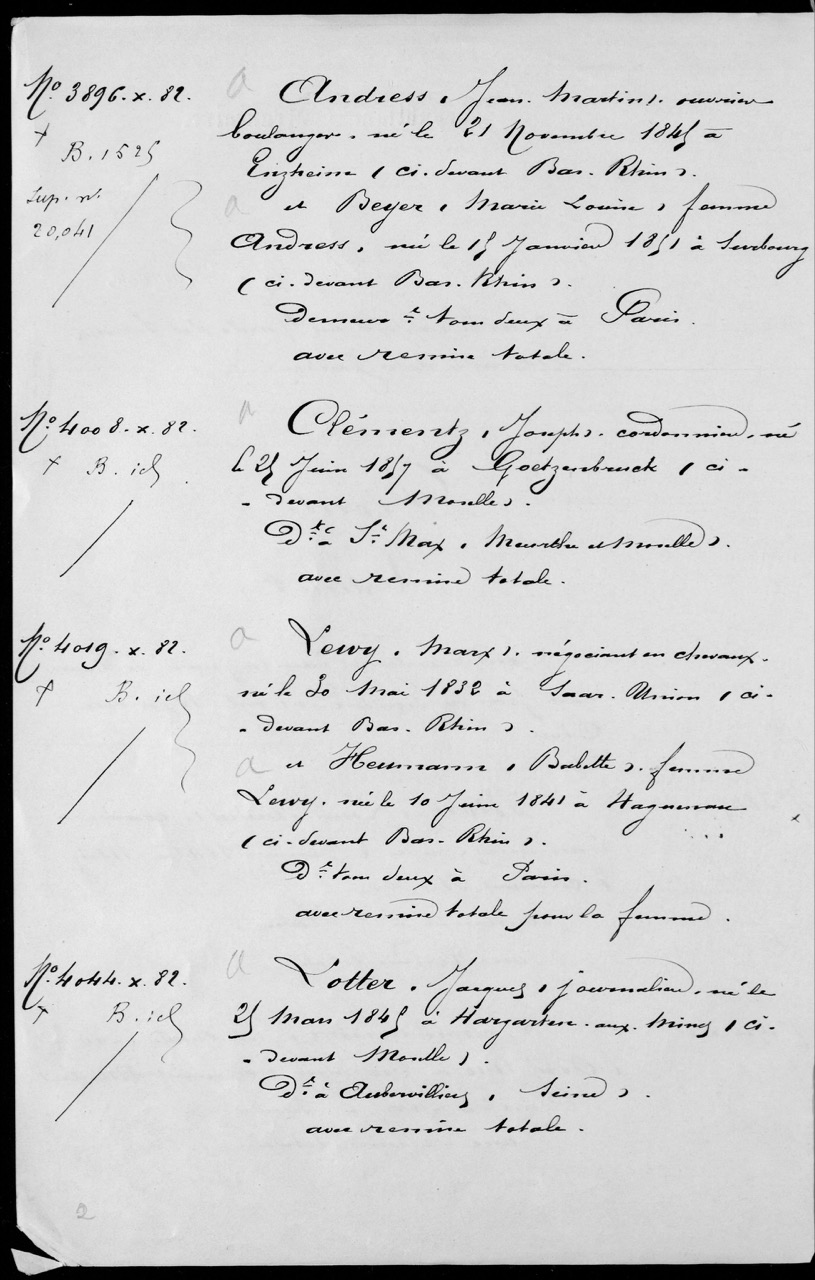 Nº 3896. x. 82.
+
B. 1525
Sup. nº
20,041
a Andress, (Jean Martin), ouvrier
boulanger, né le 21 Novembre 1845 à
Enzheim (ci-devant Bas-Rhin).
a et Beyer, (Marie Louise), femme
Andress, née le 15 Janvier 1851 à Surbourg
(ci-devant Bas-Rhin).
Demeurt tous deux à Paris.
avec remise totale.
Nº 4008. x. 82.
+ B. id
a Clémentz, (Joseph), cordonnier, né
le 25 Juin 1857 à Goetzenbruck (ci-
-devant Moselle).
Dt à St Max, (Meurthe et Moselle).
avec remise totale.
Nº 4019. x. 82.
+ B. id
a Lewy, (Marx), négociant en chevaux,
né le 30 Mai 1832 à Saar-Union (ci-
-devant Bas-Rhin).
a et Heumann, (Babette), femme
Lewy, née le 10 Juin 1841 à Haguenau
(ci-devant Bas-Rhin).
Dt tous deux à Paris.
avec remise totale pour la femme.
Nº 4044. x. 82.
+ B. id
a Lotter, (Jacques), journalier, né le
25 Mars 1845 à Hargarten-aux-Mines (ci-
-devant Moselle).
Dt à Aubervilliers, (Seine).
avec remise totale.
2